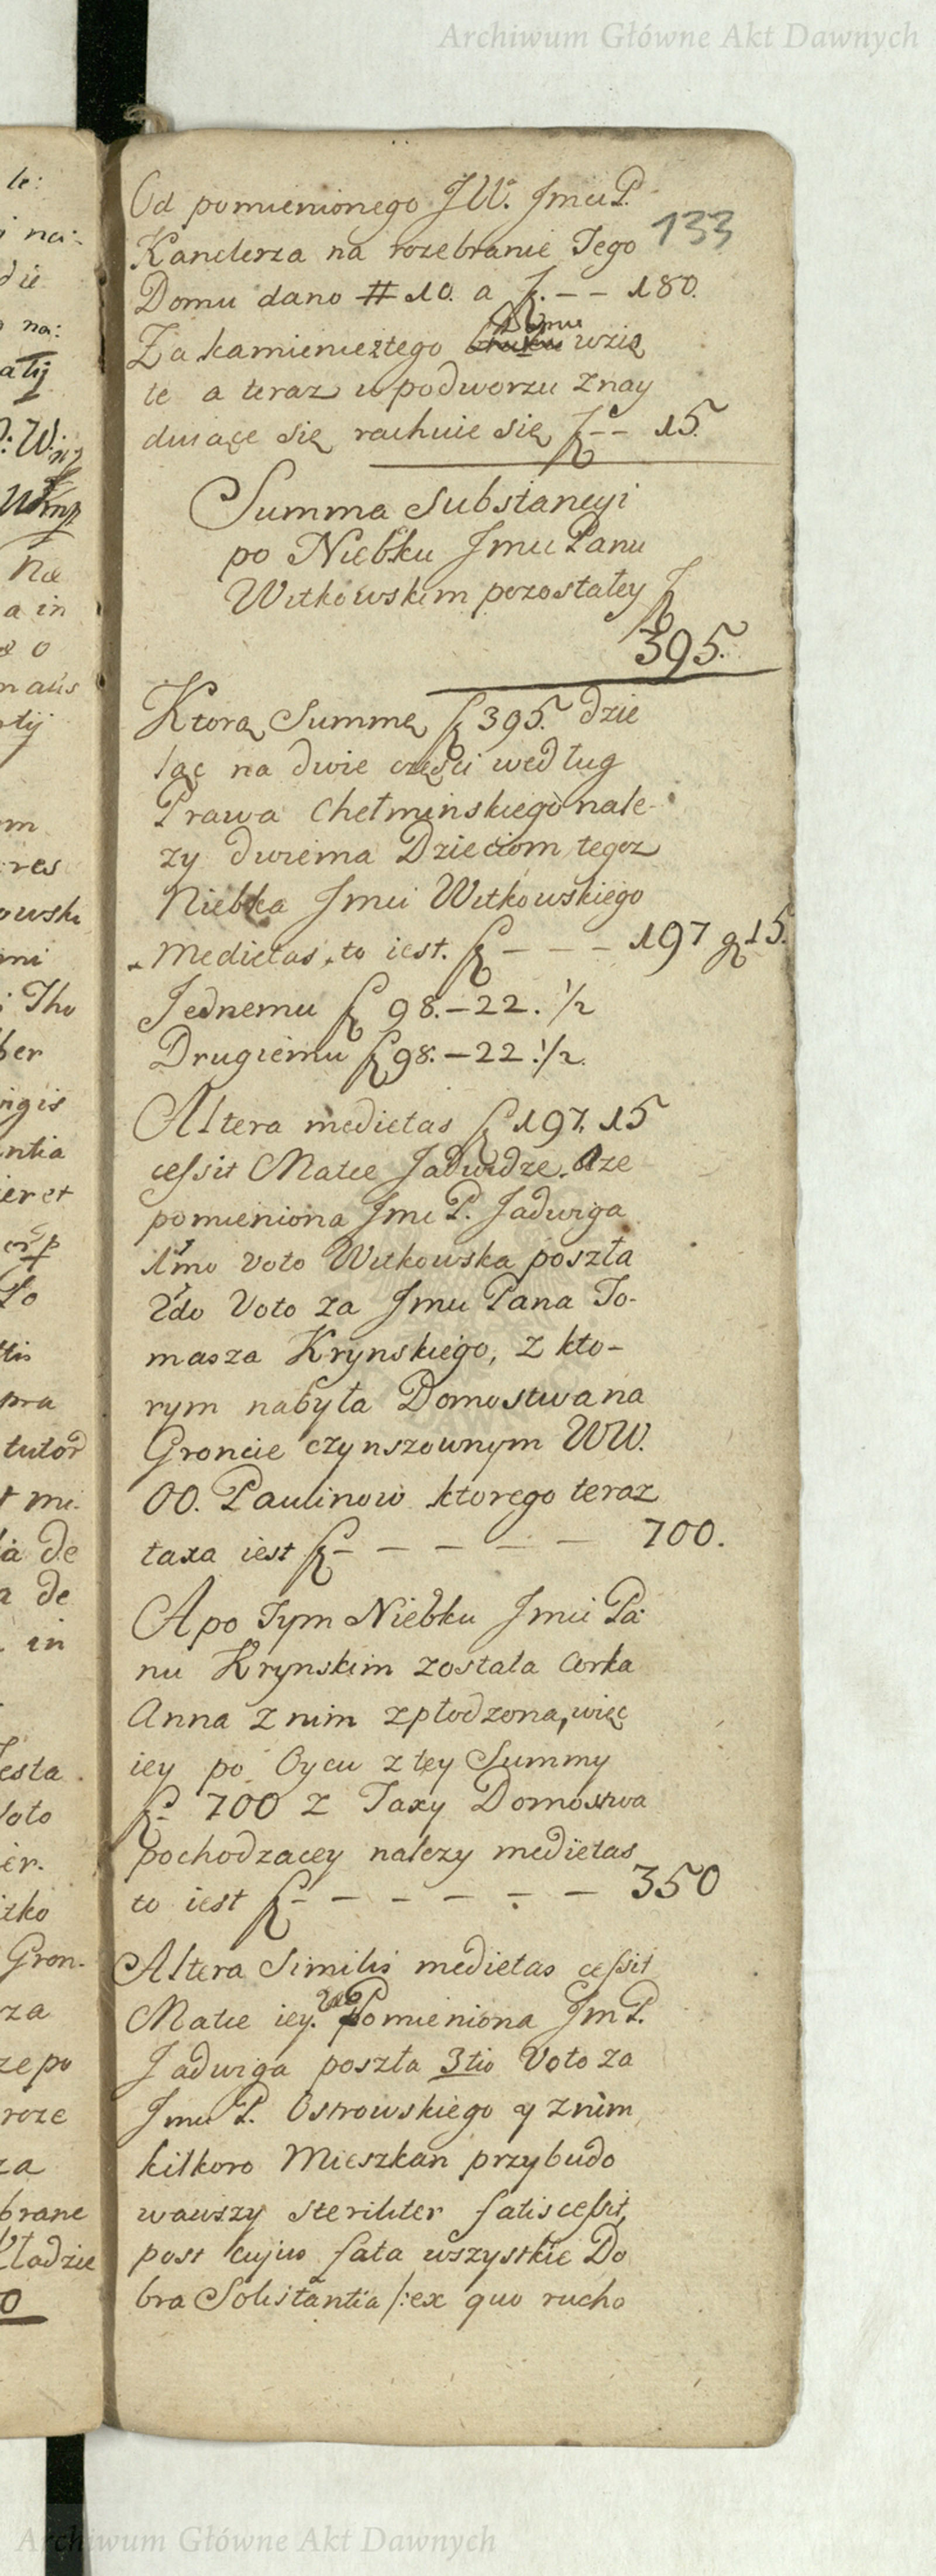 Archiwum Główne Akt Dawnych
133
Od pomienionego JW. Jmci P.
Kanclerza na rozebranie Tego
Domu dano # 10. a f. -- 180.
Za kamienie z tego Domu wzię
te a teraz w podworzu znay
duiące się rachuie się f -- 15.
Summa Substancyi
po Niebku Jmci Panu
Witkowskim pozostałey f
395.
Ktorą Summę f 395. dzie
ląc na dwie części według
Prawa Chełminskiego nale-
zy dwiema Dzieciom tegoz
Niebka Jmci Witkowskiego
Medietas, to iest. f - - - 197 g 15.
Jednemu f 98.-22. 1/2
Drugiemu f 98.-22. 1/2.
Altera medietas f 197. 15
cessit Matce Jadwidze. Aze
pomieniona Jmc P. Jadwiga
1mo voto Witkowska poszła
2do Voto za Jmci Pana To-
masza Krynskiego, z kto-
rym nabyła Domostwa na
Groncie czynszownym WW.
OO. Paulinow ktorego teraz
taxa iest f - - - - - 700.
A po Tym Niebku Jmci Pa-
nu Krynskim została Corka
Anna z nim zpłodzona, więc
iey po Oycu z tey Summy
f 700 z Taxy Domostwa
pochodzacey nalezy medietas
to iest f - - - - - - 350
Altera Similis medietas cessit
Matce iey. Pomieniona Jm P.
Jadwiga poszła 3tio Voto za
Jmci P. Ostrowskiego y z nim
kilkoro Mieszkan przybudo
wawszy steriliter fatis cessit,
post cujus fata wszystkie Do
bra Solistantia /: ex quo rucho
Archiwum Główne Akt Dawnych